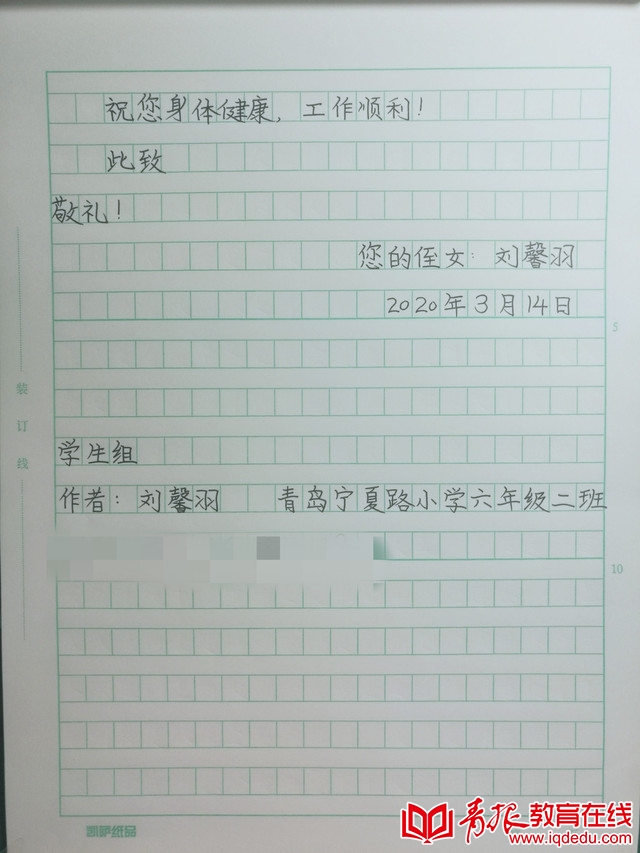 祝您身体健康，工作顺利！
此致
敬礼！
您的侄女：刘馨羽
2020年3月14日
5
装订线
学生组
作者：刘馨羽 青岛宁夏路小学六年级二班
10
凯萨纸品
青报教育在线
www.iqdedu.com